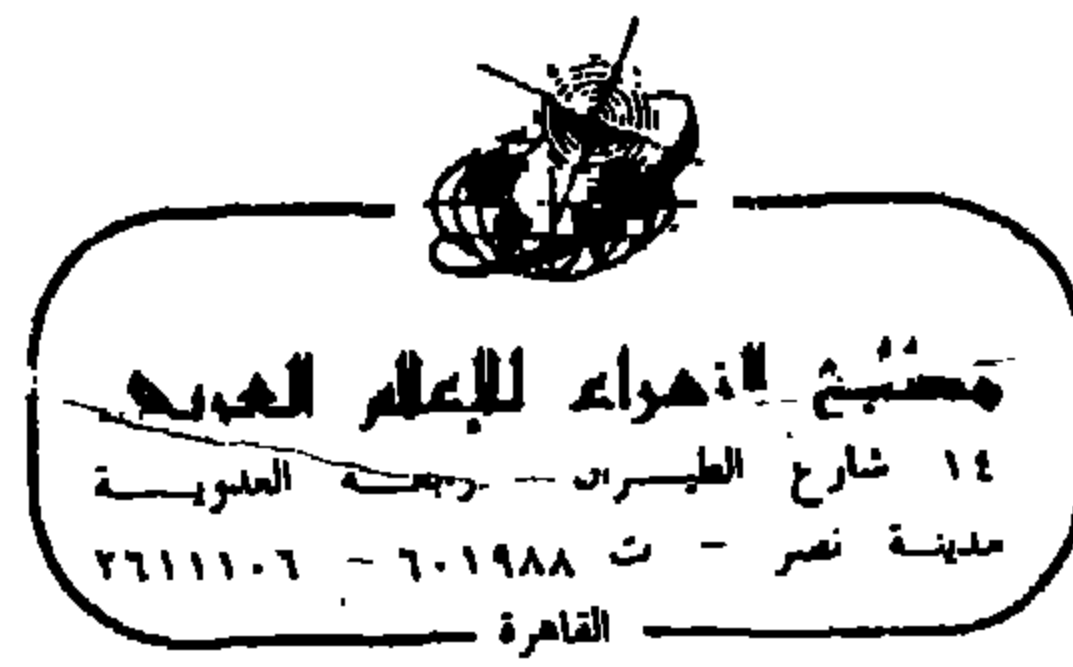 الزهراء للإعلام العربي
١٤ شارع الطيران - رابعة العدوية
مدينة نصر - ت ٦٠١٩٨٨ - ٢٦١١١٠٦
القاهرة